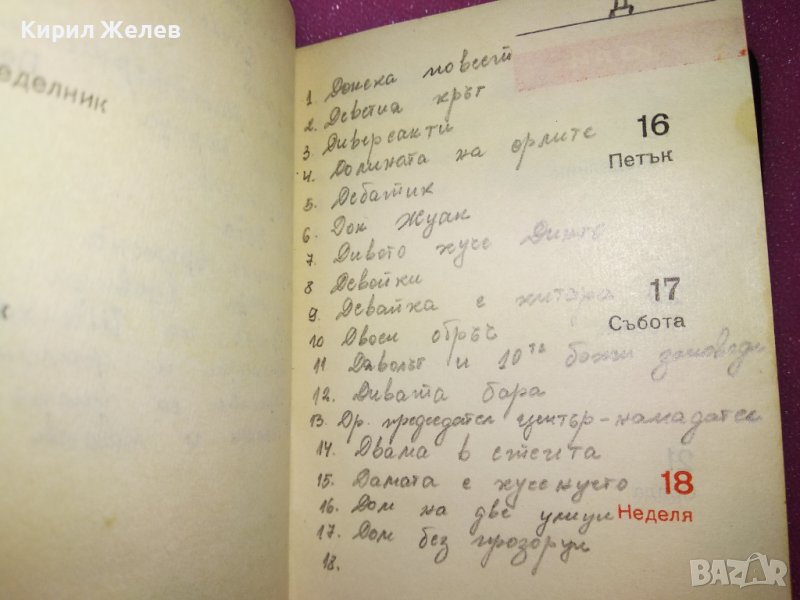 Кирил Желев
еделник
Д
1. Донска повест
2. Деветия кръг
3 Диверсанти
4. Долината на орлите
16
Петък
5 Дебатик
6. Дон Жуан
7. Дивото куче Динго
8 Девойки
9. Девойка с китара
17
Събота
10 Двоен обръч
11 Дяволът и 10те божи заповеди
12. Дивата бара
13. Др. председател център-нападател
14. Двама в степта
15. Дамата с кученцето
18
Неделя
16. Дом на две улици
17. Дом без прозорци
18.
BAZAR